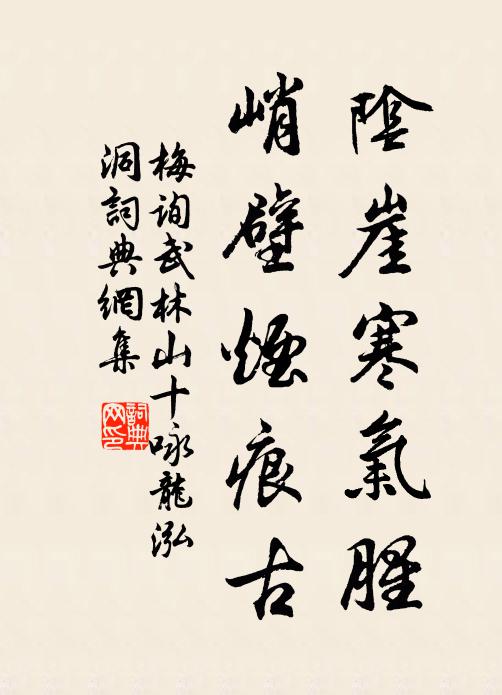 陰崖寒氣腥
峭壁煙痕古
梅询武林山十咏龍泓
洞詞典網集
詞典网印